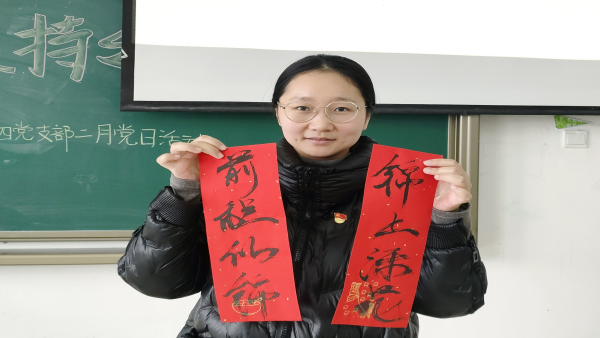 持
四党支部二月党日活
前程似锦
锦上添花